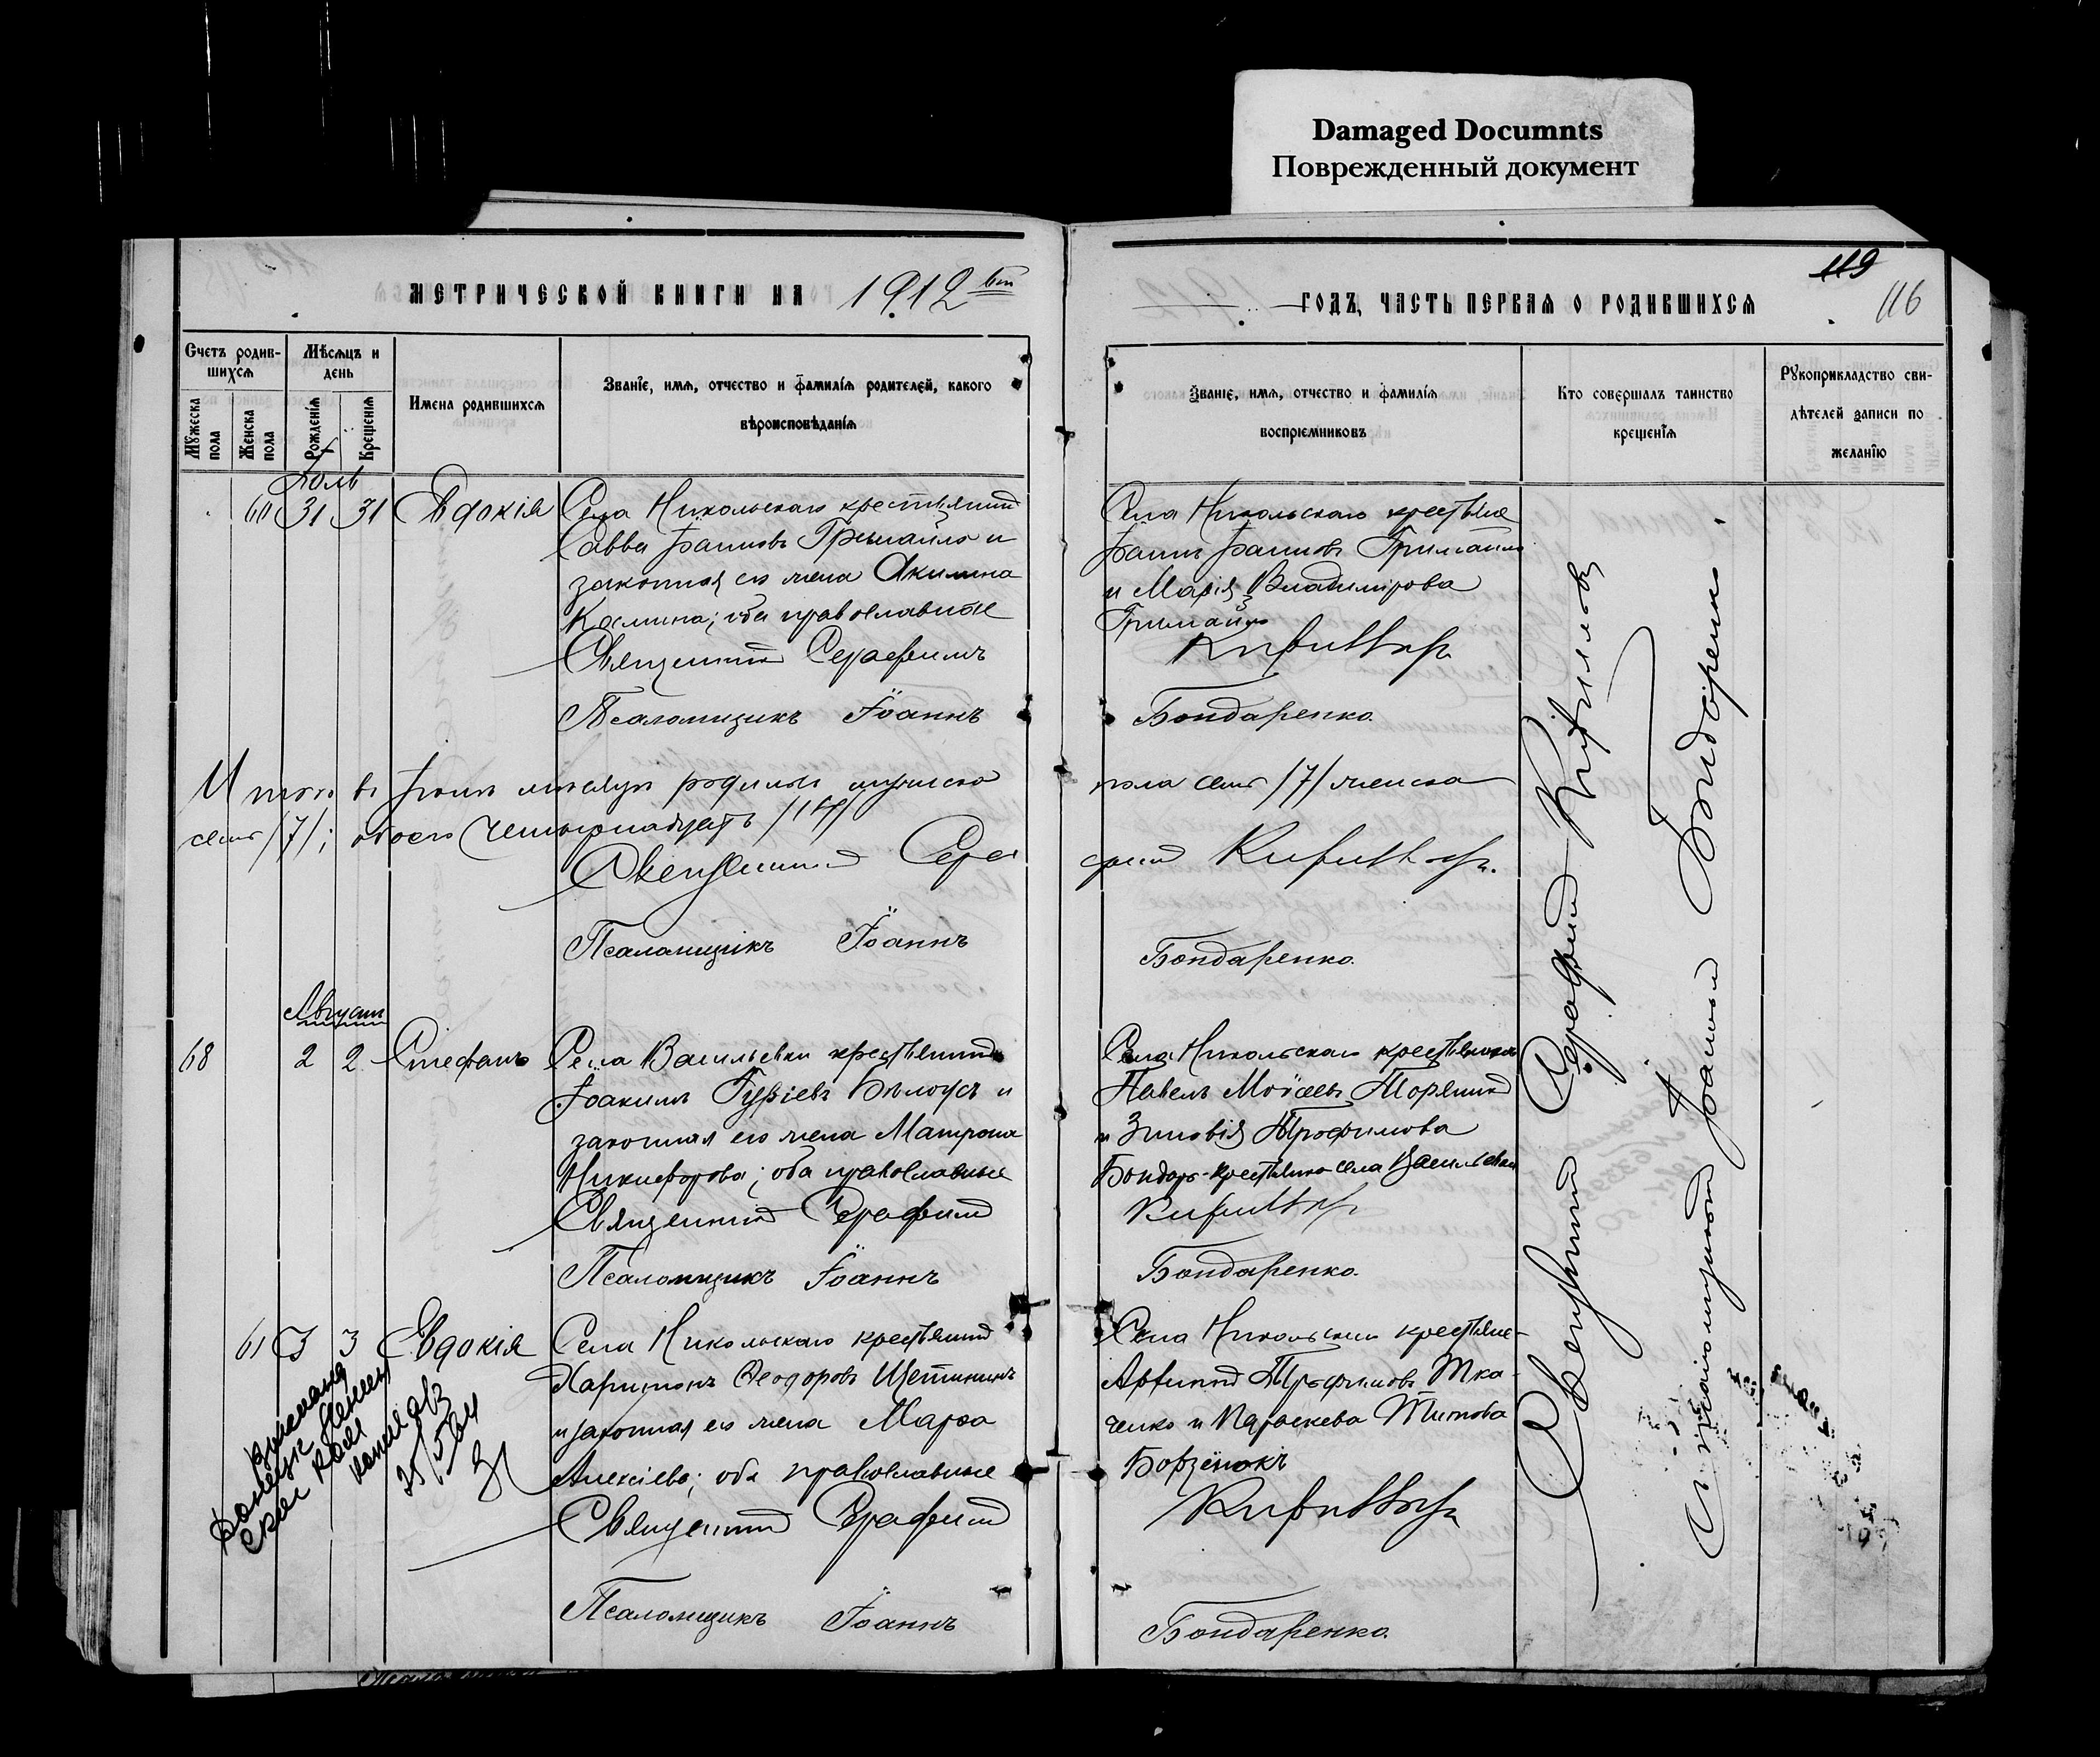 Damaged Documnts
Поврежденный документ
МЕТРИЧЕСКОЙ КНИГИ НА 1912
ГОДЪ, ЧАСТЬ ПЕРВАЯ О РОДИВШИХСЯ
119
116
Счетъ родив-
шихся
Мужеска
пола
Женска
пола
Мѣсяцъ и
день
Рожденія
Крещенія
Имена родившихся
Званіе, имя, отчество и фамилія родителей, какого
вѣроисповѣданія
Званіе, имя, отчество и фамилія
воспріемниковъ
Кто совершалъ таинство
крещенія
Рукоприкладство сви-
дѣтелей записи по
желанію
Іюль
60 31 31 Евдокія
Села Никольскаго крестьянинъ
Савва Іоанновъ Гримайло и
законная его жена Акилина
Космина; оба православные
Священникъ Серафимъ
Псаломщикъ Іоаннъ
Села Никольскаго крестьяне
Іоаннъ Іоанновъ Гримайло
и Марія Владимірова
Гримайло
Кириллов
Бондаренко.
Итого въ мѣсяцѣ родилось мужеска
пола семь /7/ женска
семь /7/; обоего четырнадцать /14/
Священникъ Сера
фимъ Кириллов
Псаломщикъ Іоаннъ
Бондаренко.
Августъ
68 2 2 Стефанъ
Села Васильевки крестьянинъ
Іоакимъ Гуріевъ Бѣлоусъ и
законная его жена Матрона
Никифорова; оба православные
Священникъ Серафимъ
Псаломщикъ Іоаннъ
Села Никольскаго крестьянинъ
Павелъ Моѵсеевъ Торяникъ
и Зиновія Трофимова
Бондарь-крестьянка села Васильевки
Кириллов
Бондаренко.
61 3 3 Евдокія
Села Никольскаго крестьянинъ
Харитонъ Ѳеодоровъ Щетининъ
и законная его жена Марѳа
Алексіева; оба православные
Священникъ Серафимъ
Псаломщикъ Іоаннъ
Села Никольскаго крестьяне
Трофимовъ Тка-
ченко и Параскева Титова
Кириллов
Бондаренко.
25/5
Священникъ Серафимъ Кирилловъ
Псаломщикъ Іоаннъ Бондаренко.